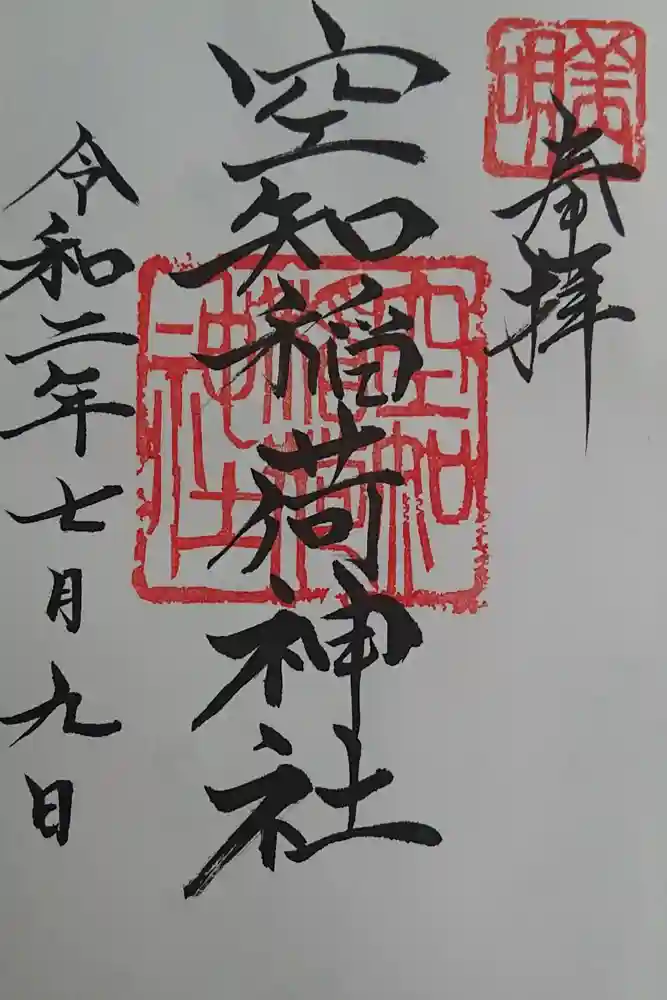 奉拝
空知稲荷神社
空知
稲荷
神社
令和二年七月九日